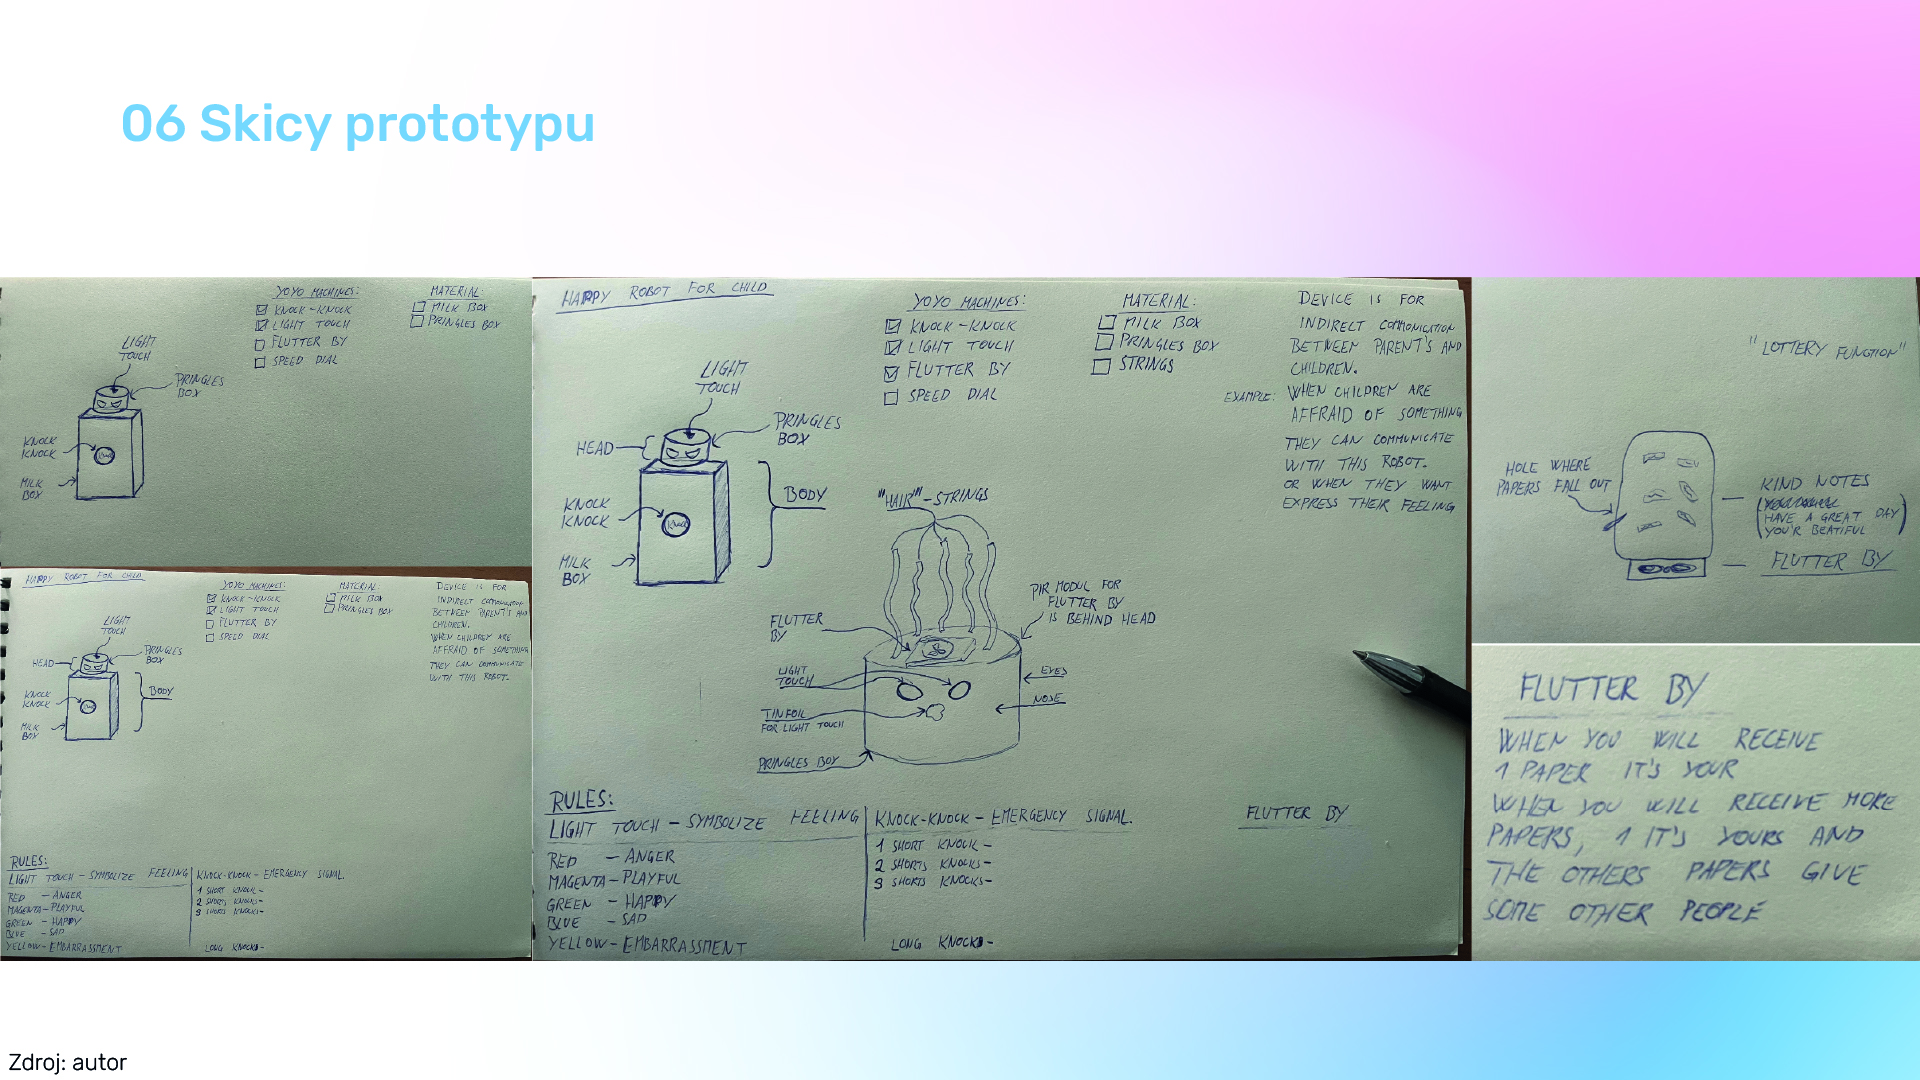 06 Skicy prototypu
YOYO MACHINES:
KNOCK-KNOCK
LIGHT TOUCH
FLUTTER BY
SPEED DIAL
MATERIAL:
MILK BOX
PRINGLES BOX
LIGHT
TOUCH
PRINGLES
BOX
KNOCK
KNOCK
MILK
BOX
HAPPY ROBOT FOR CHILD
YOYO MACHINES:
KNOCK-KNOCK
LIGHT TOUCH
FLUTTER BY
SPEED DIAL
MATERIAL:
MILK BOX
PRINGLES BOX
DEVICE IS FOR
INDIRECT COMMUNICATION
BETWEEN PARENT'S AND
CHILDREN.
WHEN CHILDREN ARE
AFFRAID OF SOMETHING
THEY CAN COMMUNICATE
WITH THIS ROBOT.
LIGHT
TOUCH
HEAD
PRINGLES
BOX
KNOCK
KNOCK
BODY
MILK
BOX
RULES:
LIGHT TOUCH - SYMBOLIZE FEELING
RED - ANGER
MAGENTA - PLAYFUL
GREEN - HAPPY
BLUE - SAD
YELLOW - EMBARRASSMENT
KNOCK-KNOCK - EMERGENCY SIGNAL.
1 SHORT KNOCK -
2 SHORTS KNOCKS -
3 SHORTS KNOCKS -
LONG KNOCK -
HAPPY ROBOT FOR CHILD
YOYO MACHINES:
KNOCK-KNOCK
LIGHT TOUCH
FLUTTER BY
SPEED DIAL
MATERIAL:
MILK BOX
PRINGLES BOX
STRINGS
DEVICE IS FOR
INDIRECT COMMONICATION
BETWEEN PARENT'S AND
CHILDREN.
EXAMPLE: WHEN CHILDREN ARE
AFFRAID OF SOMETHING
THEY CAN COMMUNICATE
WITH THIS ROBOT.
OR WHEN THEY WANT
EXPRESS THEIR FEELING
LIGHT
TOUCH
HEAD
PRINGLES
BOX
KNOCK
KNOCK
Knock
BODY
MILK
BOX
"HAIR" - STRINGS
PIR MODUL FOR
FLUTTER BY
IS BEHIND HEAD
FLUTTER
BY
LIGHT
TOUCH
EYES
NOSE
TINFOIL
FOR LIGHT TOUCH
PRINGLES BOX
RULES:
LIGHT TOUCH - SYMBOLIZE FEELING
RED - ANGER
MAGENTA - PLAYFUL
GREEN - HAPPY
BLUE - SAD
YELLOW - EMBARRASSMENT
KNOCK-KNOCK - EMERGENCY SIGNAL.
1 SHORT KNOCK -
2 SHORTS KNOCKS -
3 SHORTS KNOCKS -
LONG KNOCK -
FLUTTER BY
"LOTTERY FUNCTION"
HOLE WHERE
PAPERS FALL OUT
KIND NOTES
(HAVE A GREAT DAY
YOU'R BEATIFUL)
FLUTTER BY
FLUTTER BY
WHEN YOU WILL RECEIVE
1 PAPER IT'S YOUR
WHEN YOU WILL RECEIVE MORE
PAPERS, 1 IT'S YOURS AND
THE OTHERS PAPERS GIVE
SOME OTHER PEOPLE
Zdroj: autor